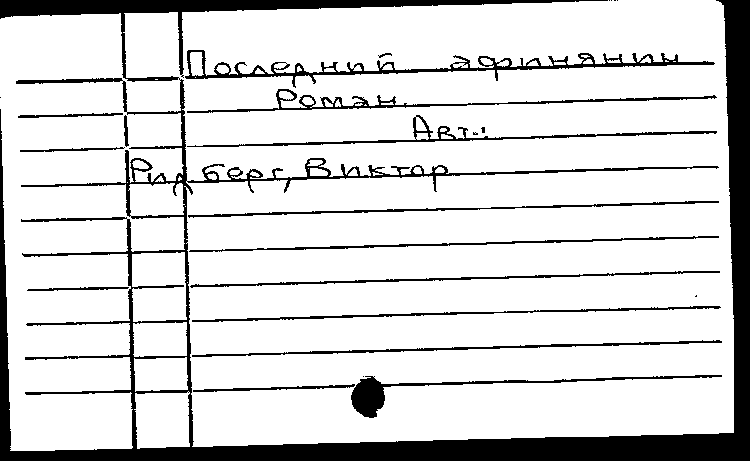 Последний афинянин
Роман.
Авт.:
Ридберг, Виктор